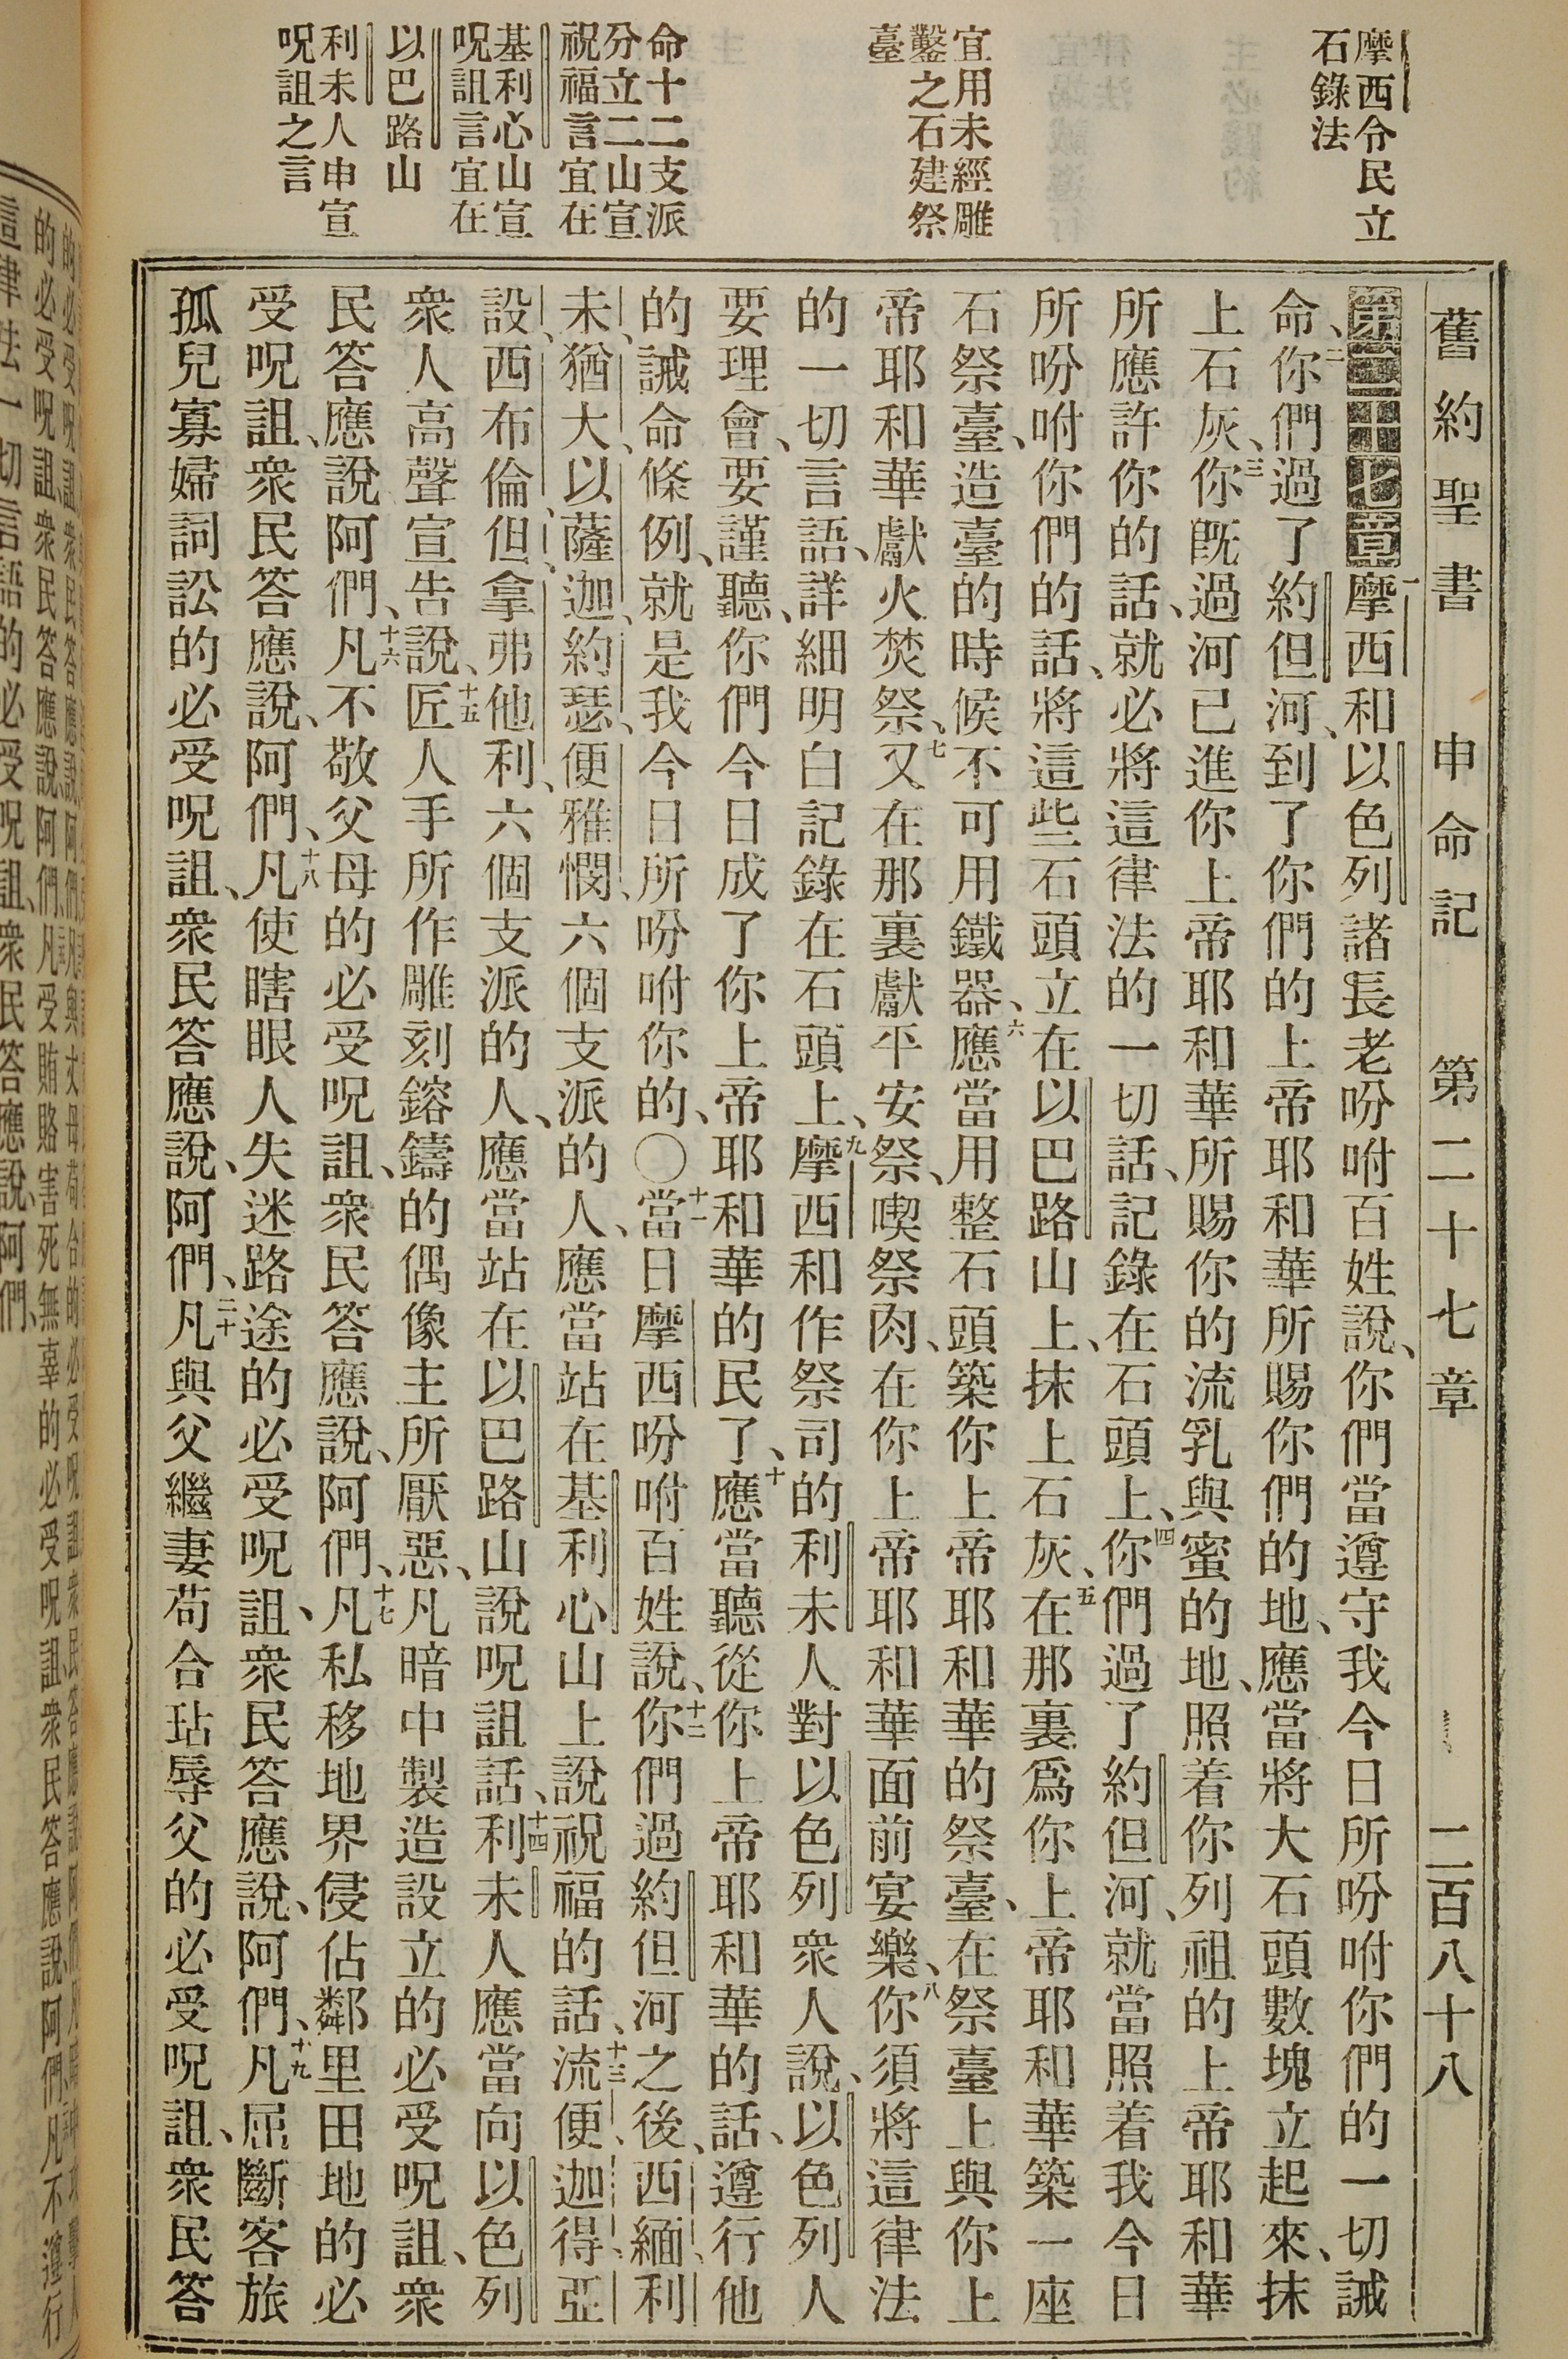 舊約聖書 申命記 第二十七章 二百八十八
摩西令民立
石錄法
宜用未經雕
鑿之石建祭
臺
命十二支派
分立二山宣
祝福言宜在
基利心山宣
呪詛言宜在
以巴路山
利未人申宣
呪詛之言
第二十七章一摩西和以色列諸長老吩咐百姓說、你們當遵守我今日所吩咐你們的一切誡
命、二你們過了約但河、到了你們的上帝耶和華所賜你們的地、應當將大石頭數塊立起來、抹
上石灰、三你旣過河已進你上帝耶和華所賜你的流乳與蜜的地、照着你列祖的上帝耶和華
所應許你的話、就必將這律法的一切話、記錄在石頭上、四你們過了約但河、就當照着我今日
所吩咐你們的話、將這些石頭立在以巴路山上、抹上石灰、五在那裏爲你上帝耶和華築一座
石祭臺、造臺的時候不可用鐵器、六應當用整石頭築你上帝耶和華的祭臺、在祭臺上與你上
帝耶和華獻火焚祭、七又在那裏獻平安祭、喫祭肉、在你上帝耶和華面前宴樂、八你須將這律法
的一切言語、詳細明白記錄在石頭上、九摩西和作祭司的利未人對以色列衆人說、以色列人
要理會、要謹聽、你們今日成了你上帝耶和華的民了、十應當聽從你上帝耶和華的話、遵行他
的誡命條例、就是我今日所吩咐你的、〇十一當日摩西吩咐百姓說、十二你們過約但河之後、西緬、利
未、猶大、以薩迦、約瑟、便雅憫、六個支派的人、應當站在基利心山上說祝福的話、十三流便、迦得、亞
設、西布倫、但、拿弗他利、六個支派的人、應當站在以巴路山說呪詛話、十四利未人應當向以色列
衆人高聲宣告說、十五匠人手所作雕刻鎔鑄的偶像主所厭惡、凡暗中製造設立的必受呪詛、衆
民答應說阿們、十六凡不敬父母的必受呪詛、衆民答應說、阿們、十七凡私移地界侵佔鄰里田地的必
受呪詛、衆民答應說、阿們、十八凡使瞎眼人失迷路途的必受呪詛、衆民答應說、阿們、十九凡屈斷客旅
孤兒寡婦詞訟的必受呪詛、衆民答應說、阿們、二十凡與父繼妻苟合玷辱父的必受呪詛、衆民答
的必受呪詛衆民答應說阿們凡受賄賂害死無辜的必受呪詛衆民答應說阿們凡不遵行
這律法一切言語的必受呪詛衆民答應說阿們